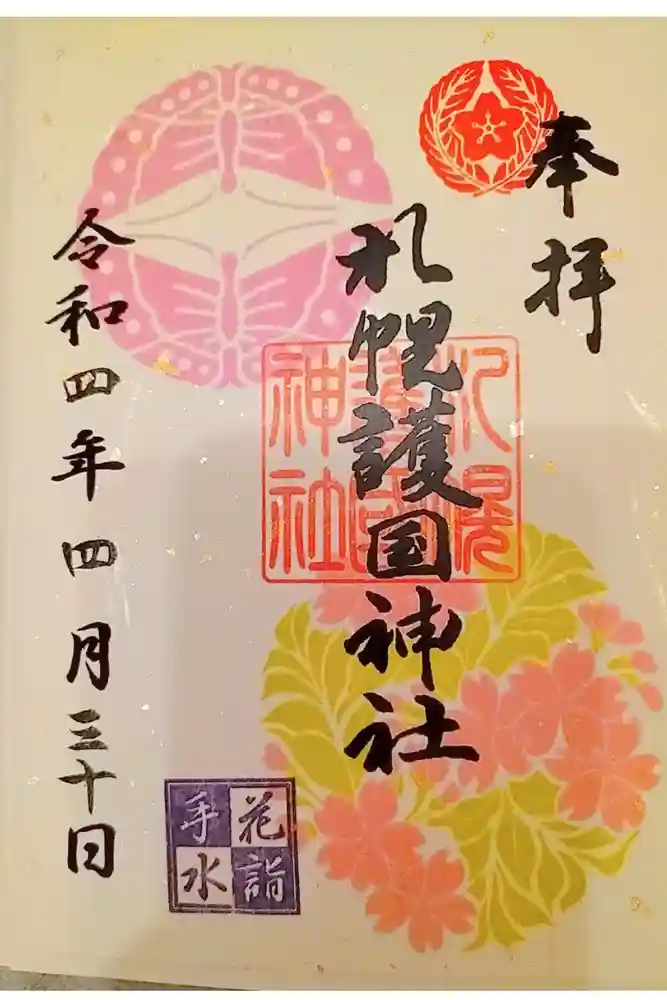 奉拝
札幌護国神社
札幌
護国
神社
令和四年四月三十日
花詣
手水